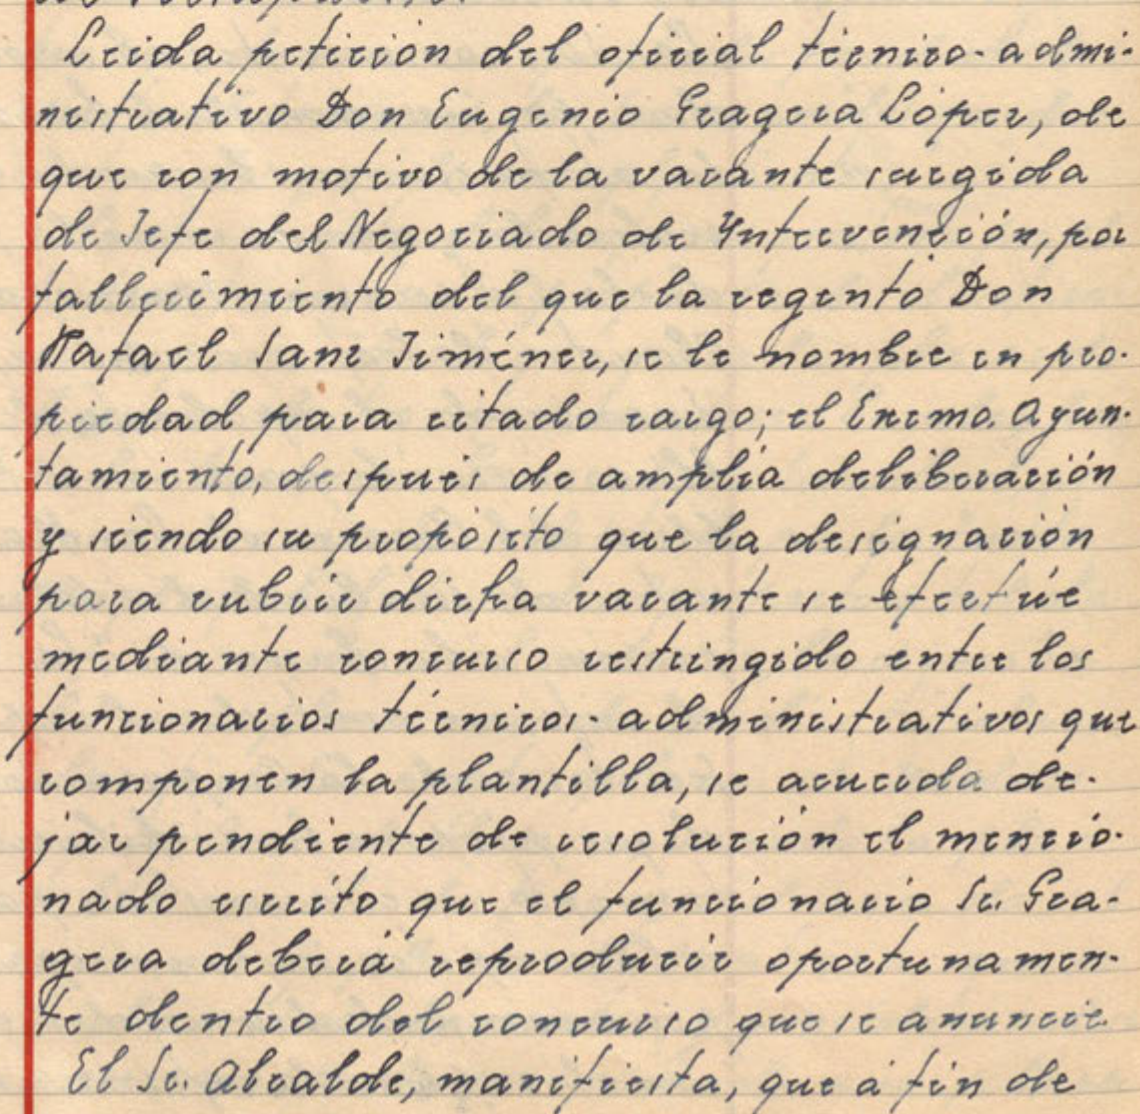 Leida petición del oficial técnico-admi-
nistrativo Don Eugenio Gragera López, de
que con motivo de la vacante surgida
de Jefe del Negociado de Yntervención, por
fallecimiento del que la regentó Don
Rafael Sanz Jiménez, se le nombre en pro-
piedad para citado cargo; el Excmo. Ayun-
tamiento, después de amplia deliberación
y siendo su propósito que la designación
para cubrir dicha vacante se efectúe
mediante concurso restringido entre los
funcionarios técnicos-administrativos que
componen la plantilla, se acuerda de-
jar pendiente de resolución el mencio-
nado escrito que el funcionario Sr. Gra-
gera deberá reproducir oportunamen-
te dentro del concurso que se anuncie.
El Sr. Alcalde, manifiesta, que á fin de